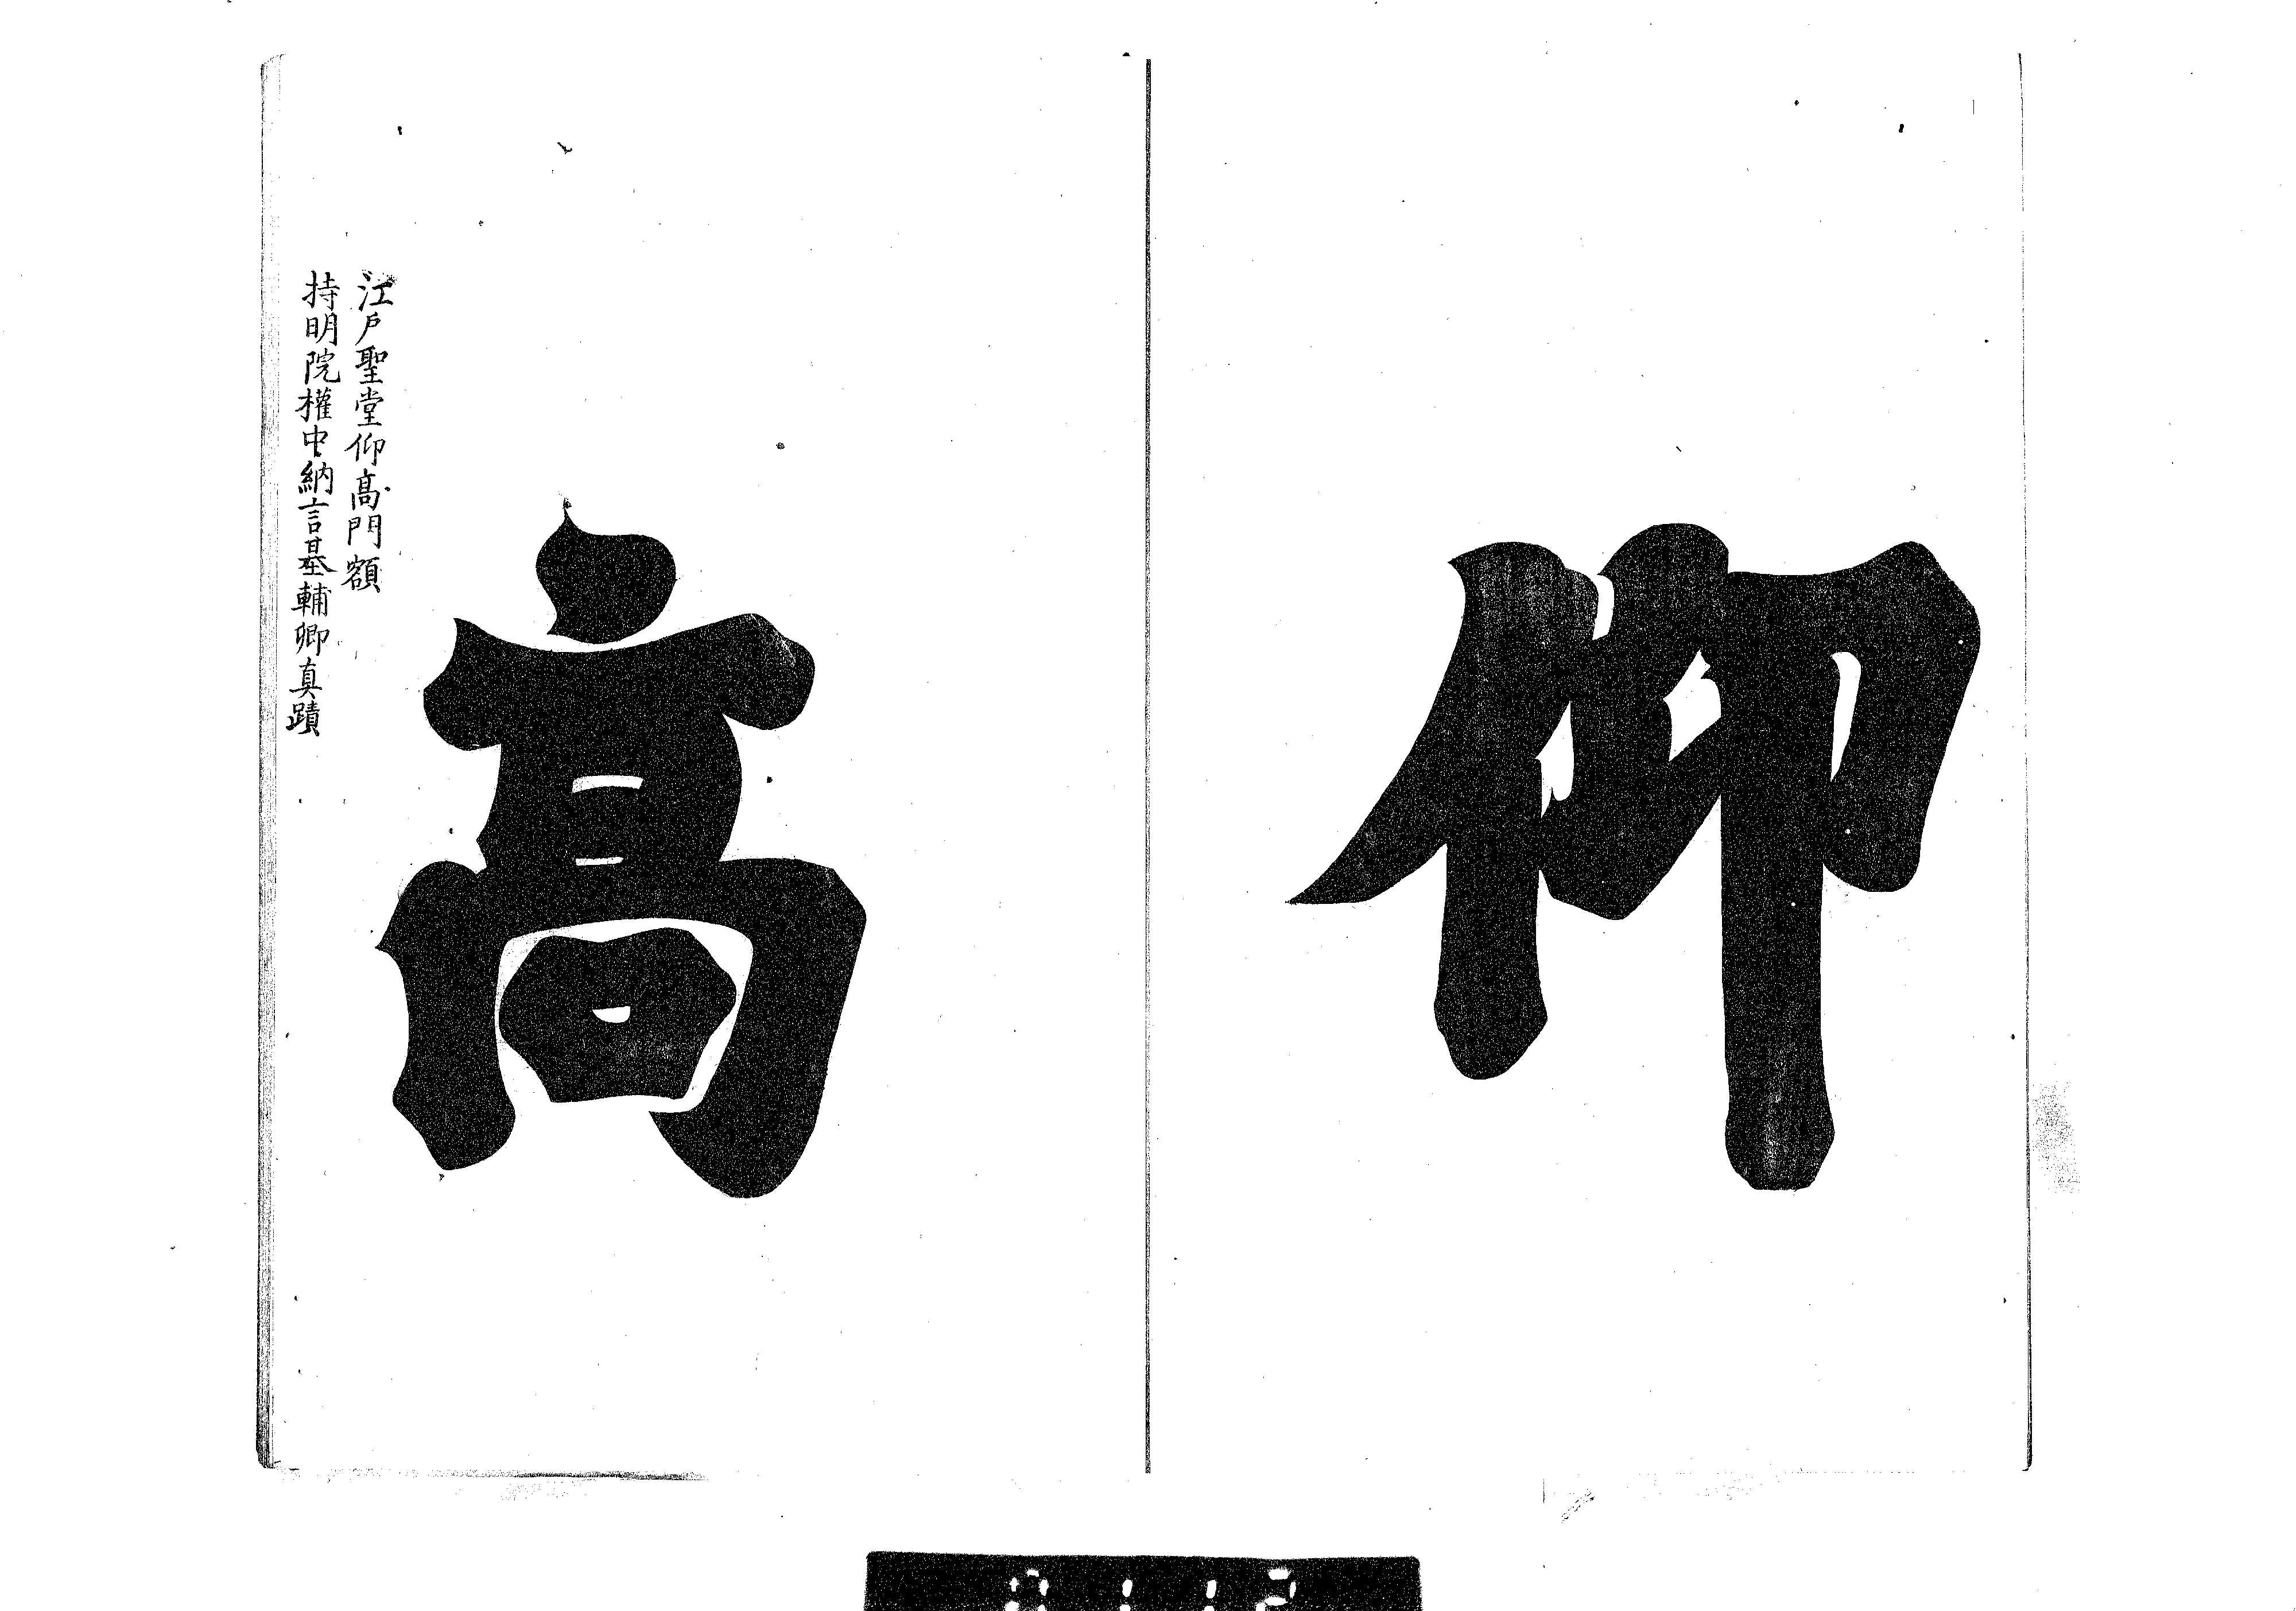 仰
髙
江戸聖堂仰髙門額
持明院權中納言基輔卿真蹟
0112